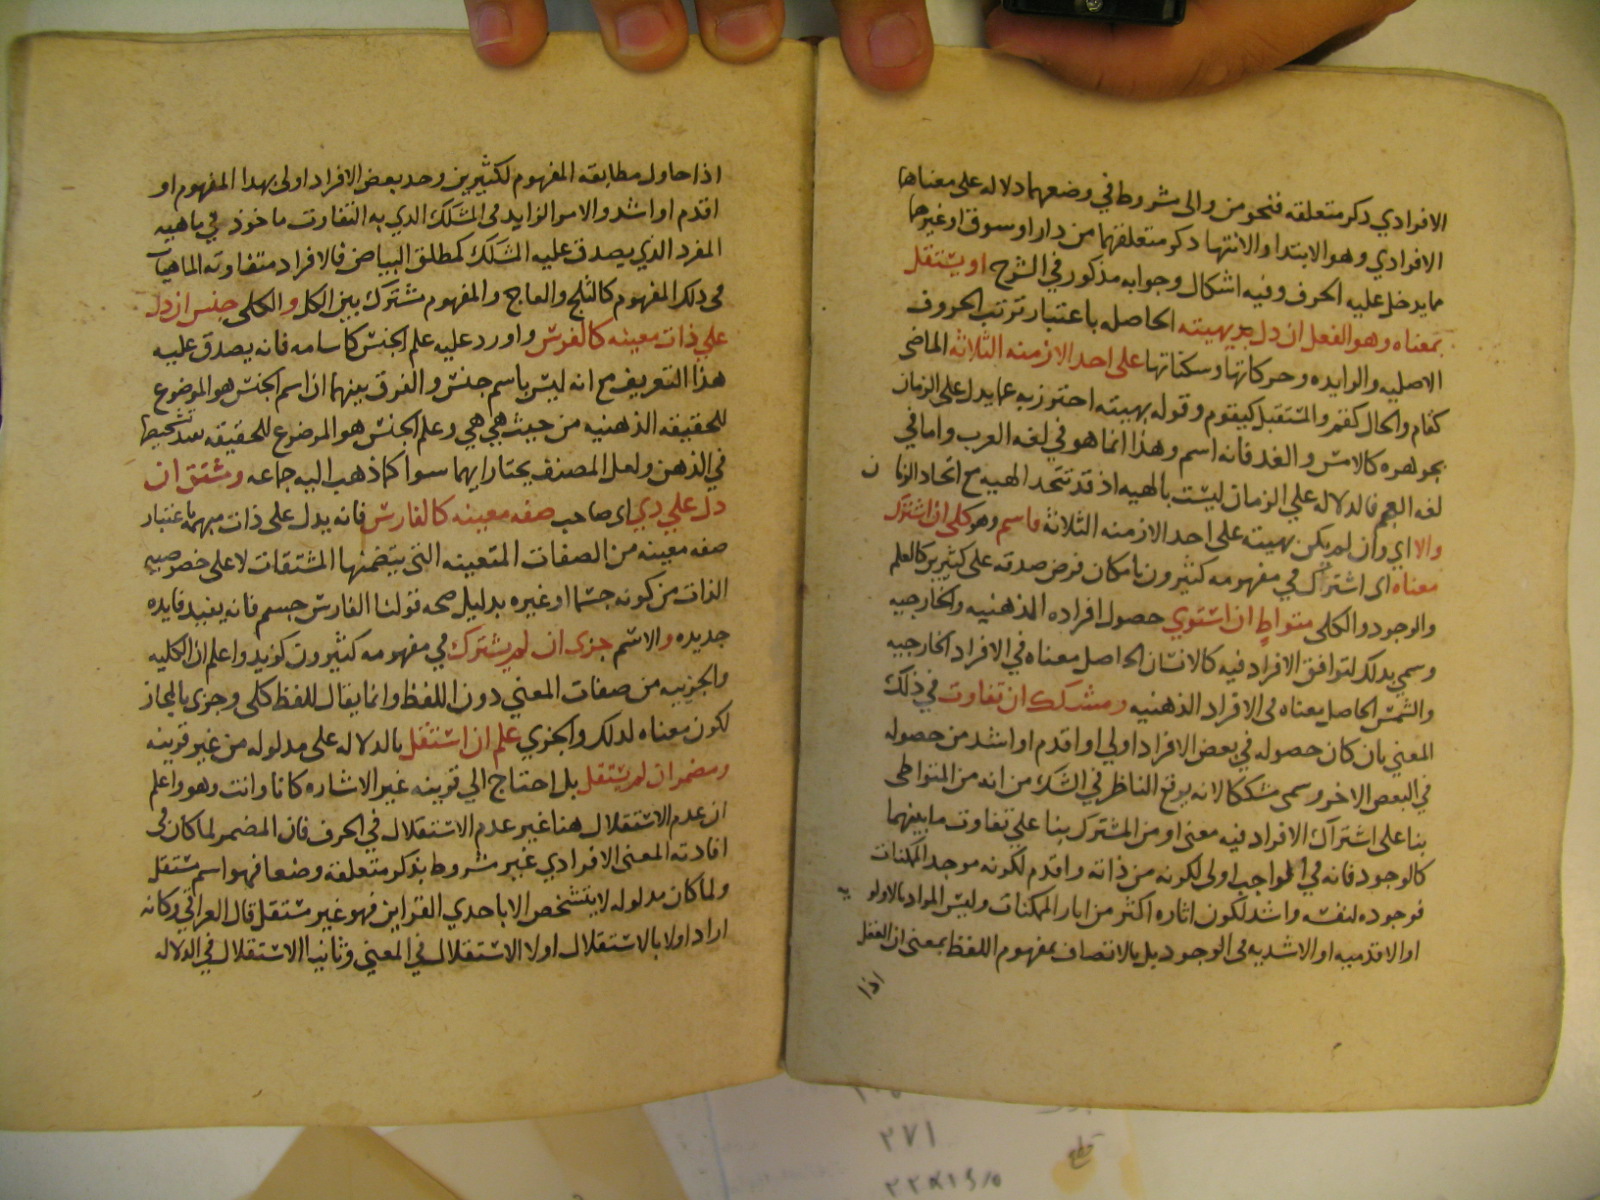 الافرادي ذكر متعلقه فنحو من والى مشروط في وضعهما دلاله على معناهما
الافرادي وهو الابتدا والانتها ذكر متعلقهما من دار او سوق او غيرهما
مما يدخل عليه الحرف وفيه اشكال وجوابه مذكور في الشرح او يستقل
بمعناه وهو الفعل ان دل بهيته الحاصله باعتبار ترتب الحروف
الاصليه والزايده وحركاتها وسكناتها على احد الازمنه الثلاثه الماضى
كقام والحال كقم والمستقبل كيقوم وقوله بهيته احترز به عما يدل على الزمان
بجوهره كالامس والغد فانه اسم وهذا انما هو في لغه العرب واما في
لغه العجم فالدلاله علي الزمان ليست بالهيه اذ قد تتحد الهيه مع اتحاد الزمان
والا اي وان لم يكن بهيته على احد الازمنه الثلاثة فاسم وهو كلى ان اشترك
معناه اى اشتراك في مفهومه كثيرون بامكان فرض صدقه على كثيرين كالعلم
والوجود والكلى متواطٍ ان استوي حصول افراده الذهنيه والخارجيه
وسمي بذلك لتوافق الافراد فيه كالانسان الحاصل معناه في الافراد الخارجيه
والشمس الحاصل معناه فى الافراد الذهنيه ومشكك ان تفاوت في ذلك
المعني بان كان حصوله في بعض الافراد اولي او اقدم او اشد من حصوله
في البعض الاخر وسمى مشككا لانه يوقع الناظر في الشك من انه من المتواطى
بنا على اشتراك الافراد فيه معنى او من المشترك بنا علي تفاوت ما بينهما
كالوجود فانه في الواجب اولى لكونه من ذاته واقدم لكونه موجد الممكنات
فوجوده لنفسه واشد لكون اثاره اكثر من اثار الممكنات وليس المراد بالاولويه
او الاقدميه او الاشديه فى الوجود بل بالاتصاف بمفهوم اللفظ بمعنى ان العقل
اذا
اذا حاول مطابقه المفهوم لكثيرين وجد بعض الافراد اولى بهدا المفهوم او
اقدم او اشد والامر الزايد فى المشكك الذي به التفاوت ماخوذ في ماهيه
المفرد الذي يصدق عليه المشكك كمطلق البياض فالافراد متفاوته الماهيات
فى ذلك المفهوم كالثلج والعاج والمفهوم مشترك بين الكل والكلى جنس ان دل
علي ذات معينه كالفرس واورد عليه علم الجنس كاسامه فانه يصدق عليه
هذا التعريف مع انه ليس باسم جنس والفرق بينهما ان اسم الجنس هو الموضوع
للحقيقه الذهنيه من حيث هي هي وعلم الجنس هو الموضوع للحقيقه بتشخيصها
في الذهن ولعل المصنف يختار انهما سوا كما ذهب اليه جماعه ومشتق ان
دل علي ذي اى صاحب صفه معينه كالفارس فانه يدل على ذات مبهمه باعتبار
صفه معينه من الصفات المتعينه التى يتضمنها المشتقات لا على خصوصيه
الذات من كونه جسما او غيره بدليل صحه قولنا الفارس جسم فانه يفيد فايده
جديده والاسم جزى ان لم يشترك في مفهومه كثيرون كزيد واعلم ان الكليه
والجزييه من صفات المعني دون اللفظ وانما يقال للفظ كلى وجزى بالمجاز
لكون معناه لدلك والجزي علم ان استقل بالدلاله على مدلوله من غير قرينه
ومضمر ان لم يستقل بل احتاج الي قرينه غير الاشاره كانا وانت وهو واعلم
ان عدم الاستقلال هنا غير عدم الاستقلال في الحرف فان المضمر لما كان فى
افادته المعنى الافرادي غير مشروط بذكر متعلقه وضعا فهو اسم مستقل
ولما كان مدلوله لا يتشخص الا باحدي القراين فهو غير مستقل قال العراقي وكانه
اراد اولا بالاستقلال اولا الاستقلال في المعني وثانيا الاستقلال في الدلاله
٢٧١